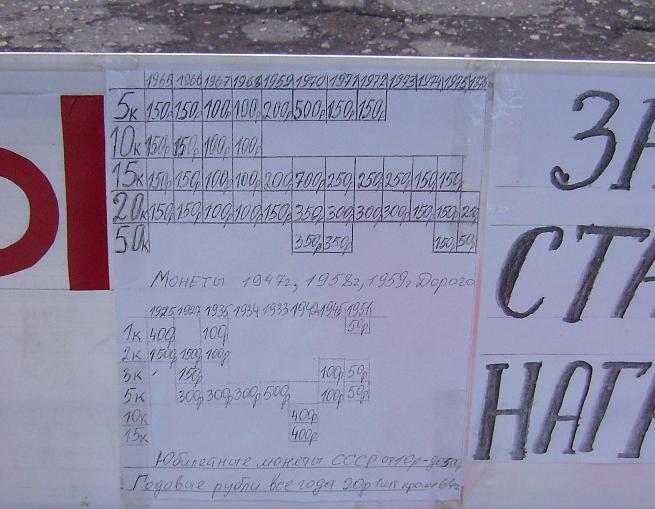 1965 1966 1967 1968 1969 1970 1971 1972 1973 1974 1975 1976
5к 150р 150р 100р 100р 200р 500р 150р 150р
10к 150р 150р 100р 100р
15к 150р 150р 100р 100р 200р 700р 250р 250р 250р 150р 150р
20к 150р 150р 100р 100р 150р 350р 300р 300р 300р 150р 150р 250
50к 350р 350р 150р 50р
Монеты 1947г, 1958г, 1959г Дорого
1925 1927 1935 1934 1933 1942 1945 1951
1к 400р 100р 50р
2к 1500р 1500р 100р
3к 150р 100р 50р
5к 300р 300р 300р 500р 100р 50р
10к 400р
15к 400р
Юбилейные монеты СССР от 10р-до
Годовые рубли все годы 20р 1шт кроме
ЗА
СТА
НАГР